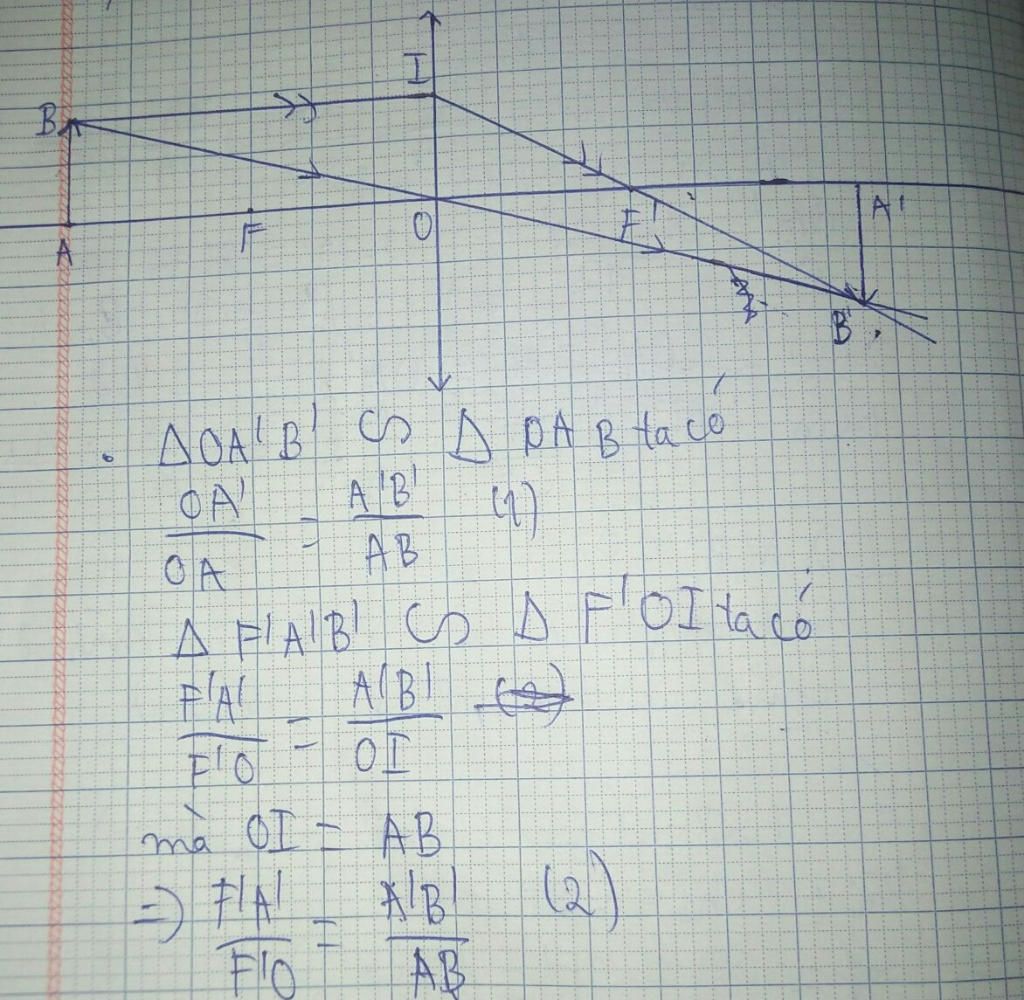 I
B
A F O F' A'
B'
. ΔOA'B' ∽ Δ OAB ta có
OA'/OA = A'B'/AB (1)
Δ F'A'B' ∽ Δ F'OI ta có
F'A'/F'O = A'B'/OI (2)
mà OI = AB
=> F'A'/F'O = A'B'/AB (2)